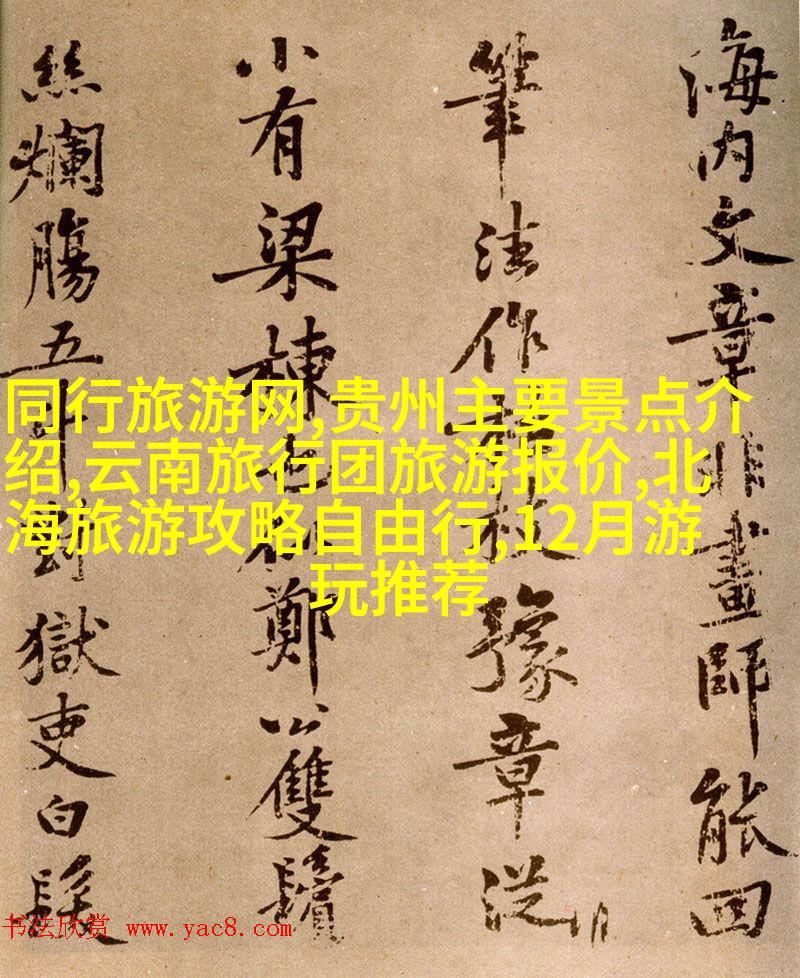 海内文章非畫師能回
筆法作枯枝豫章從
小有梁棟也似鄭公雙鬢
絲爛腸五斗對獄吏白髮
同行旅游网,贵州主要景点介
绍,云南旅行团旅游报价,北
海旅游攻略自由行,12月游
玩推荐
书法欣赏 www.yac8.com